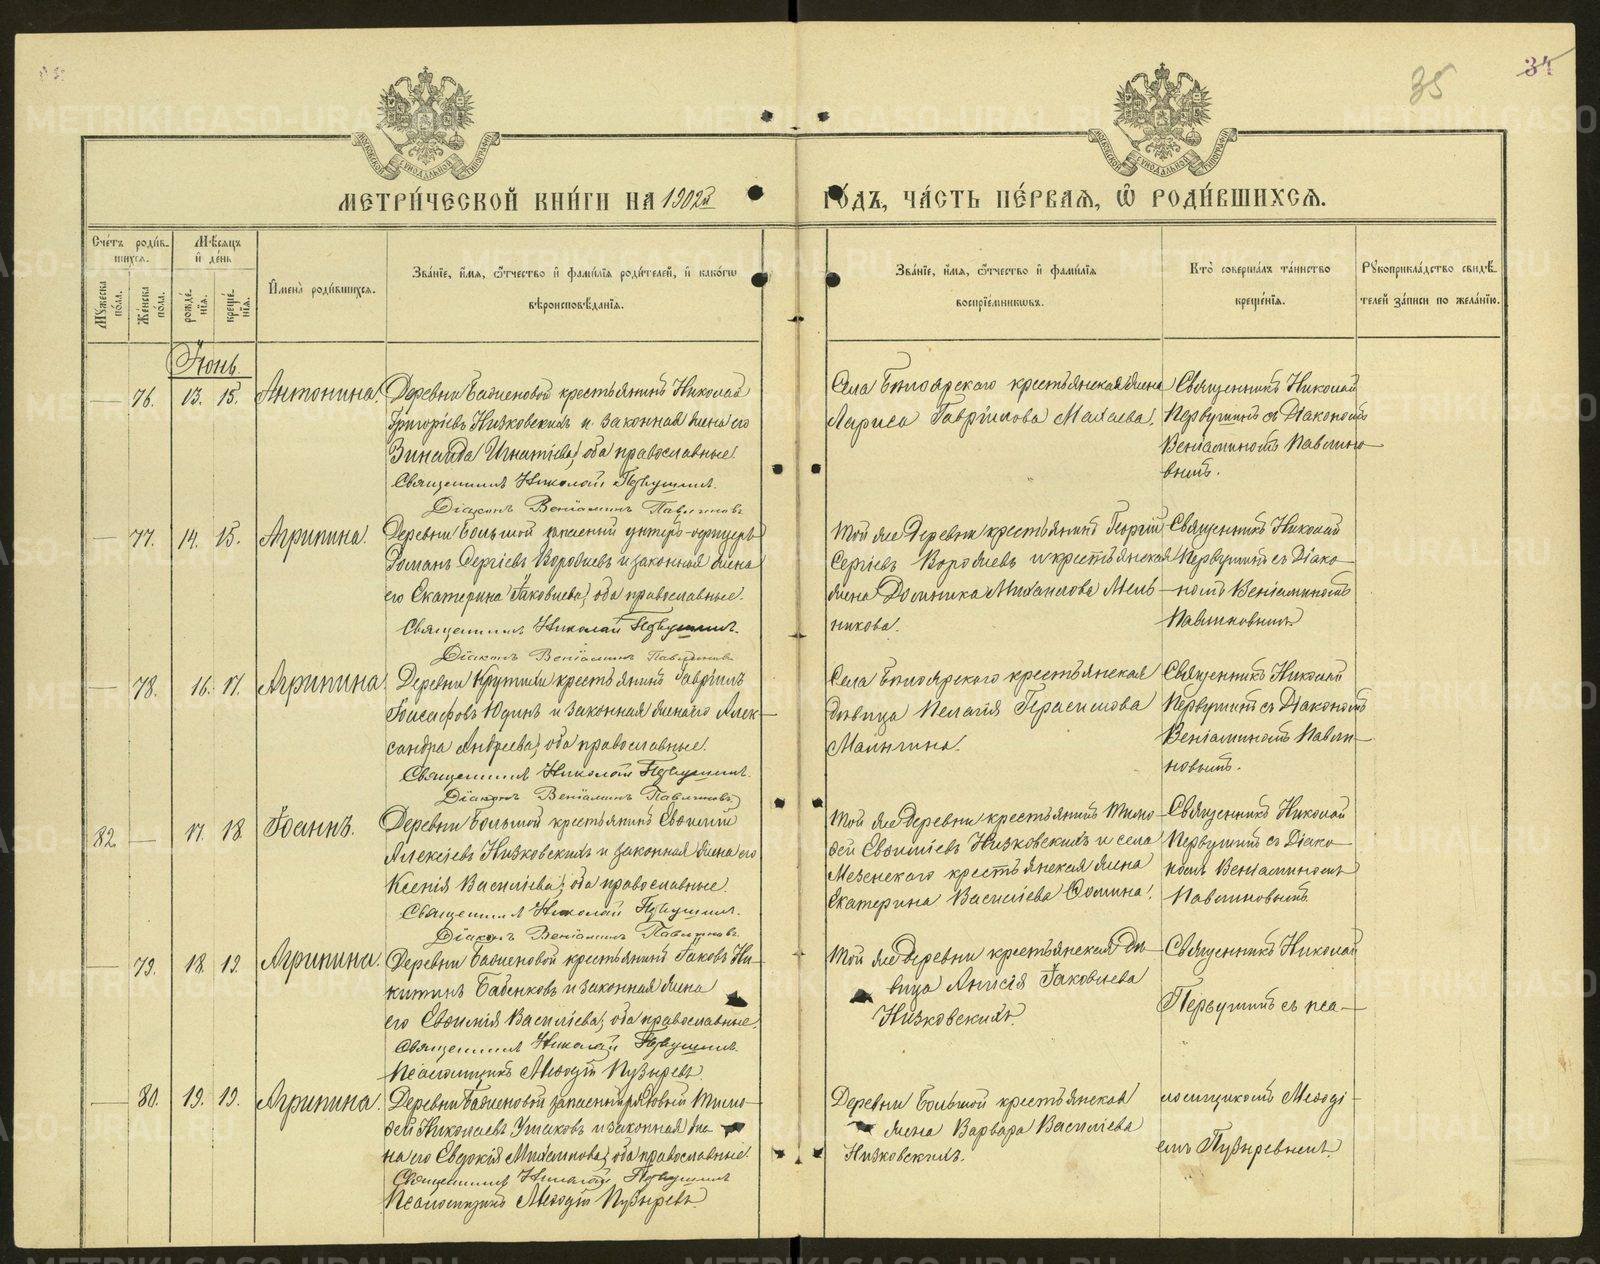 35
34
МЕТРИ́ЧЕСКОЙ КНИ́ГИ НА 1902й
ГО́ДЪ, ЧА́СТЬ ПЕ́РВАЯ, Ѿ РОДИ́ВШИХСЯ.
Сче́тъ роди́вшихся.
Мꙋжеска по́ла.
Же́нска по́ла.
Мѣ́сяцъ и҆ де́нь
рожде́нїя.
креще́нїя.
И҆мена̀ роди́вшихся.
Зва́нїе, и҆́мя, ѻ҆́тчество и҆ фами́лїя роди́телей, и҆ како́гѡ вѣроисповѣ́данїя.
Зва́нїе, и҆́мя, ѻ҆́тчество и҆ фами́лїя воспрїе́мникѡвъ.
Кто̀ соверша́лъ та́инство креще́нїя.
Рꙋкоприкла́дство свидѣ́телей за́писи по жела́нїю.
Іюнь.
— 76. 13. 15. Антонина.
Деревни Бабиеновой крестьянинъ Николай
Григоріевъ Низковскихъ и законная жена его
Зинаида Игнатіева, оба православные
Священникъ Николай Первушинъ.
Діаконъ Веніаминъ Павлиновъ
Села Бѣлоярскаго крестьянская жена
Лариса Гавріилова Малаева.
Священникъ Николай
Первушинъ съ Діакономъ
Веніаминомъ Павлино-
вымъ.
— 77. 14. 15. Агрипина.
Деревни Большой запасный унтеръ-офицеръ
Романъ Сергіевъ Воробьевъ и законная жена
его Екатерина Іаковлева, оба православные.
Священникъ Николай Первушинъ.
Діаконъ Веніаминъ Павлиновъ
Той же деревни крестьянинъ Георгій
Сергіевъ Воробьевъ и крестьянская
жена Домника Михаилова Мель-
никова.
Священникъ Николай
Первушинъ съ Діако-
номъ Веніаминомъ
Павлиновымъ
— 78. 16. 17. Агрипина
Деревни Крутихи крестьянинъ Гавріилъ
Іоасафовъ Юдинъ и законная жена его Алек-
сандра Андреева, оба православные.
Священникъ Николай Первушинъ.
Діаконъ Веніаминъ Павлиновъ
Села Бѣлоярскаго крестьянская
дѣвица Пелагія Герасимова
Малыгина.
Священникъ Николай
Первушинъ съ Діакономъ
Веніаминомъ Павли-
новымъ.
82 — 17. 18. Іоаннъ.
Деревни Большой крестьянинъ Евѳимій
Алексіевъ Низковскихъ и законная жена его
Ксенія Василіева, оба православные.
Священникъ Николай Первушинъ.
Діаконъ Веніаминъ Павлиновъ
Той же деревни крестьянинъ Тимо-
ѳей Евѳиміевъ Низковскихъ и села
Мезенскаго крестьянская жена
Екатерина Василіева Ѳомина.
Священникъ Николай
Первушинъ съ Діако-
номъ Веніаминомъ
Павлиновымъ
— 79. 18. 19. Агрипина.
Деревни Бабиеновой крестьянинъ Іаковъ Ни-
китинъ Бабенковъ и законная жена
его Евѳимія Василіева, оба православные.
Священникъ Николай Первушинъ.
Псаломщикъ Меѳодій Пузыревъ
Той же деревни крестьянская дѣ-
вица Анисія Іаковлева
Низковскихъ.
Священникъ Николай
Первушинъ съ пса-
— 80. 19. 19. Агрипина.
Деревни Бабиеновой запасный рядовой Тимо-
ѳей Николаевъ Ушаковъ и законная же-
на его Евдокія Михаилова, оба православные.
Священникъ Николай Первушинъ
Псаломщикъ Меѳодій Пузыревъ
Деревни Большой крестьянская
жена Варвара Василіева
Низковскихъ.
ломщикомъ Меѳоді-
емъ Пузыревымъ.
METRIKI.GASO-URAL.RU